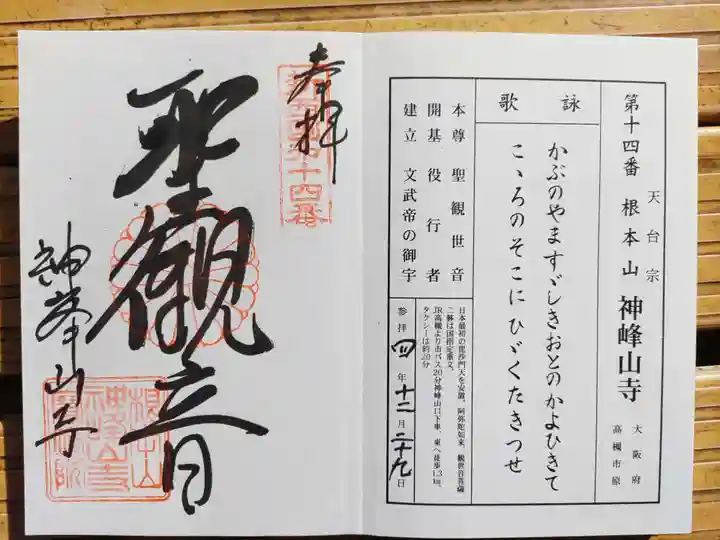 天台宗
第十四番 根本山 神峰山寺
大阪府
高槻市原
詠歌
かぶのやますゞしきおとのかよひきて
こゝろのそこにひゞくたきつせ
本尊 聖観世音
開基 役行者
建立 文武帝の御宇
日本最初の毘沙門天を安置。阿弥陀如来、観世音菩薩
二軀は国指定重文。
JR高槻より市バス20分神峰山口下車、東へ徒歩1.3㎞、
タクシーは約20分
参拝 四年十二月二十九日
奉拝
第十四番
聖観世音
神峯山寺
根本山
神峯山寺